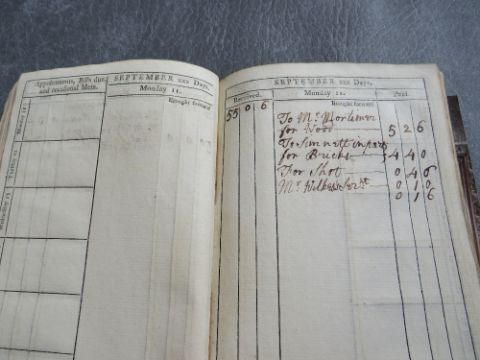 Appointments, Bills due, and occasional Mem.
SEPTEMBER xxx Days.
Monday 11.
Brought forward
Monday 11
SEPTEMBER xxx Days.
Received. Monday 11. Paid.
Brought forward
55 0 6
To Mr Mortimer
for Wood 5 2 6
To Sinnett in part
for Bricks 4 4 0
For Shot 0 4 6
Mr Servt. 0 1 0
0 1 6